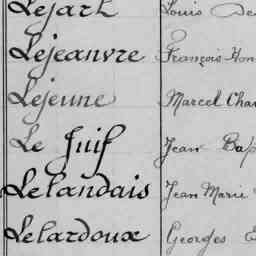 Lejart Louis
Lejeanvre François
Lejeune Marcel
Le Juif Jean
Lelandais Jean Marie
Lelardoux Georges